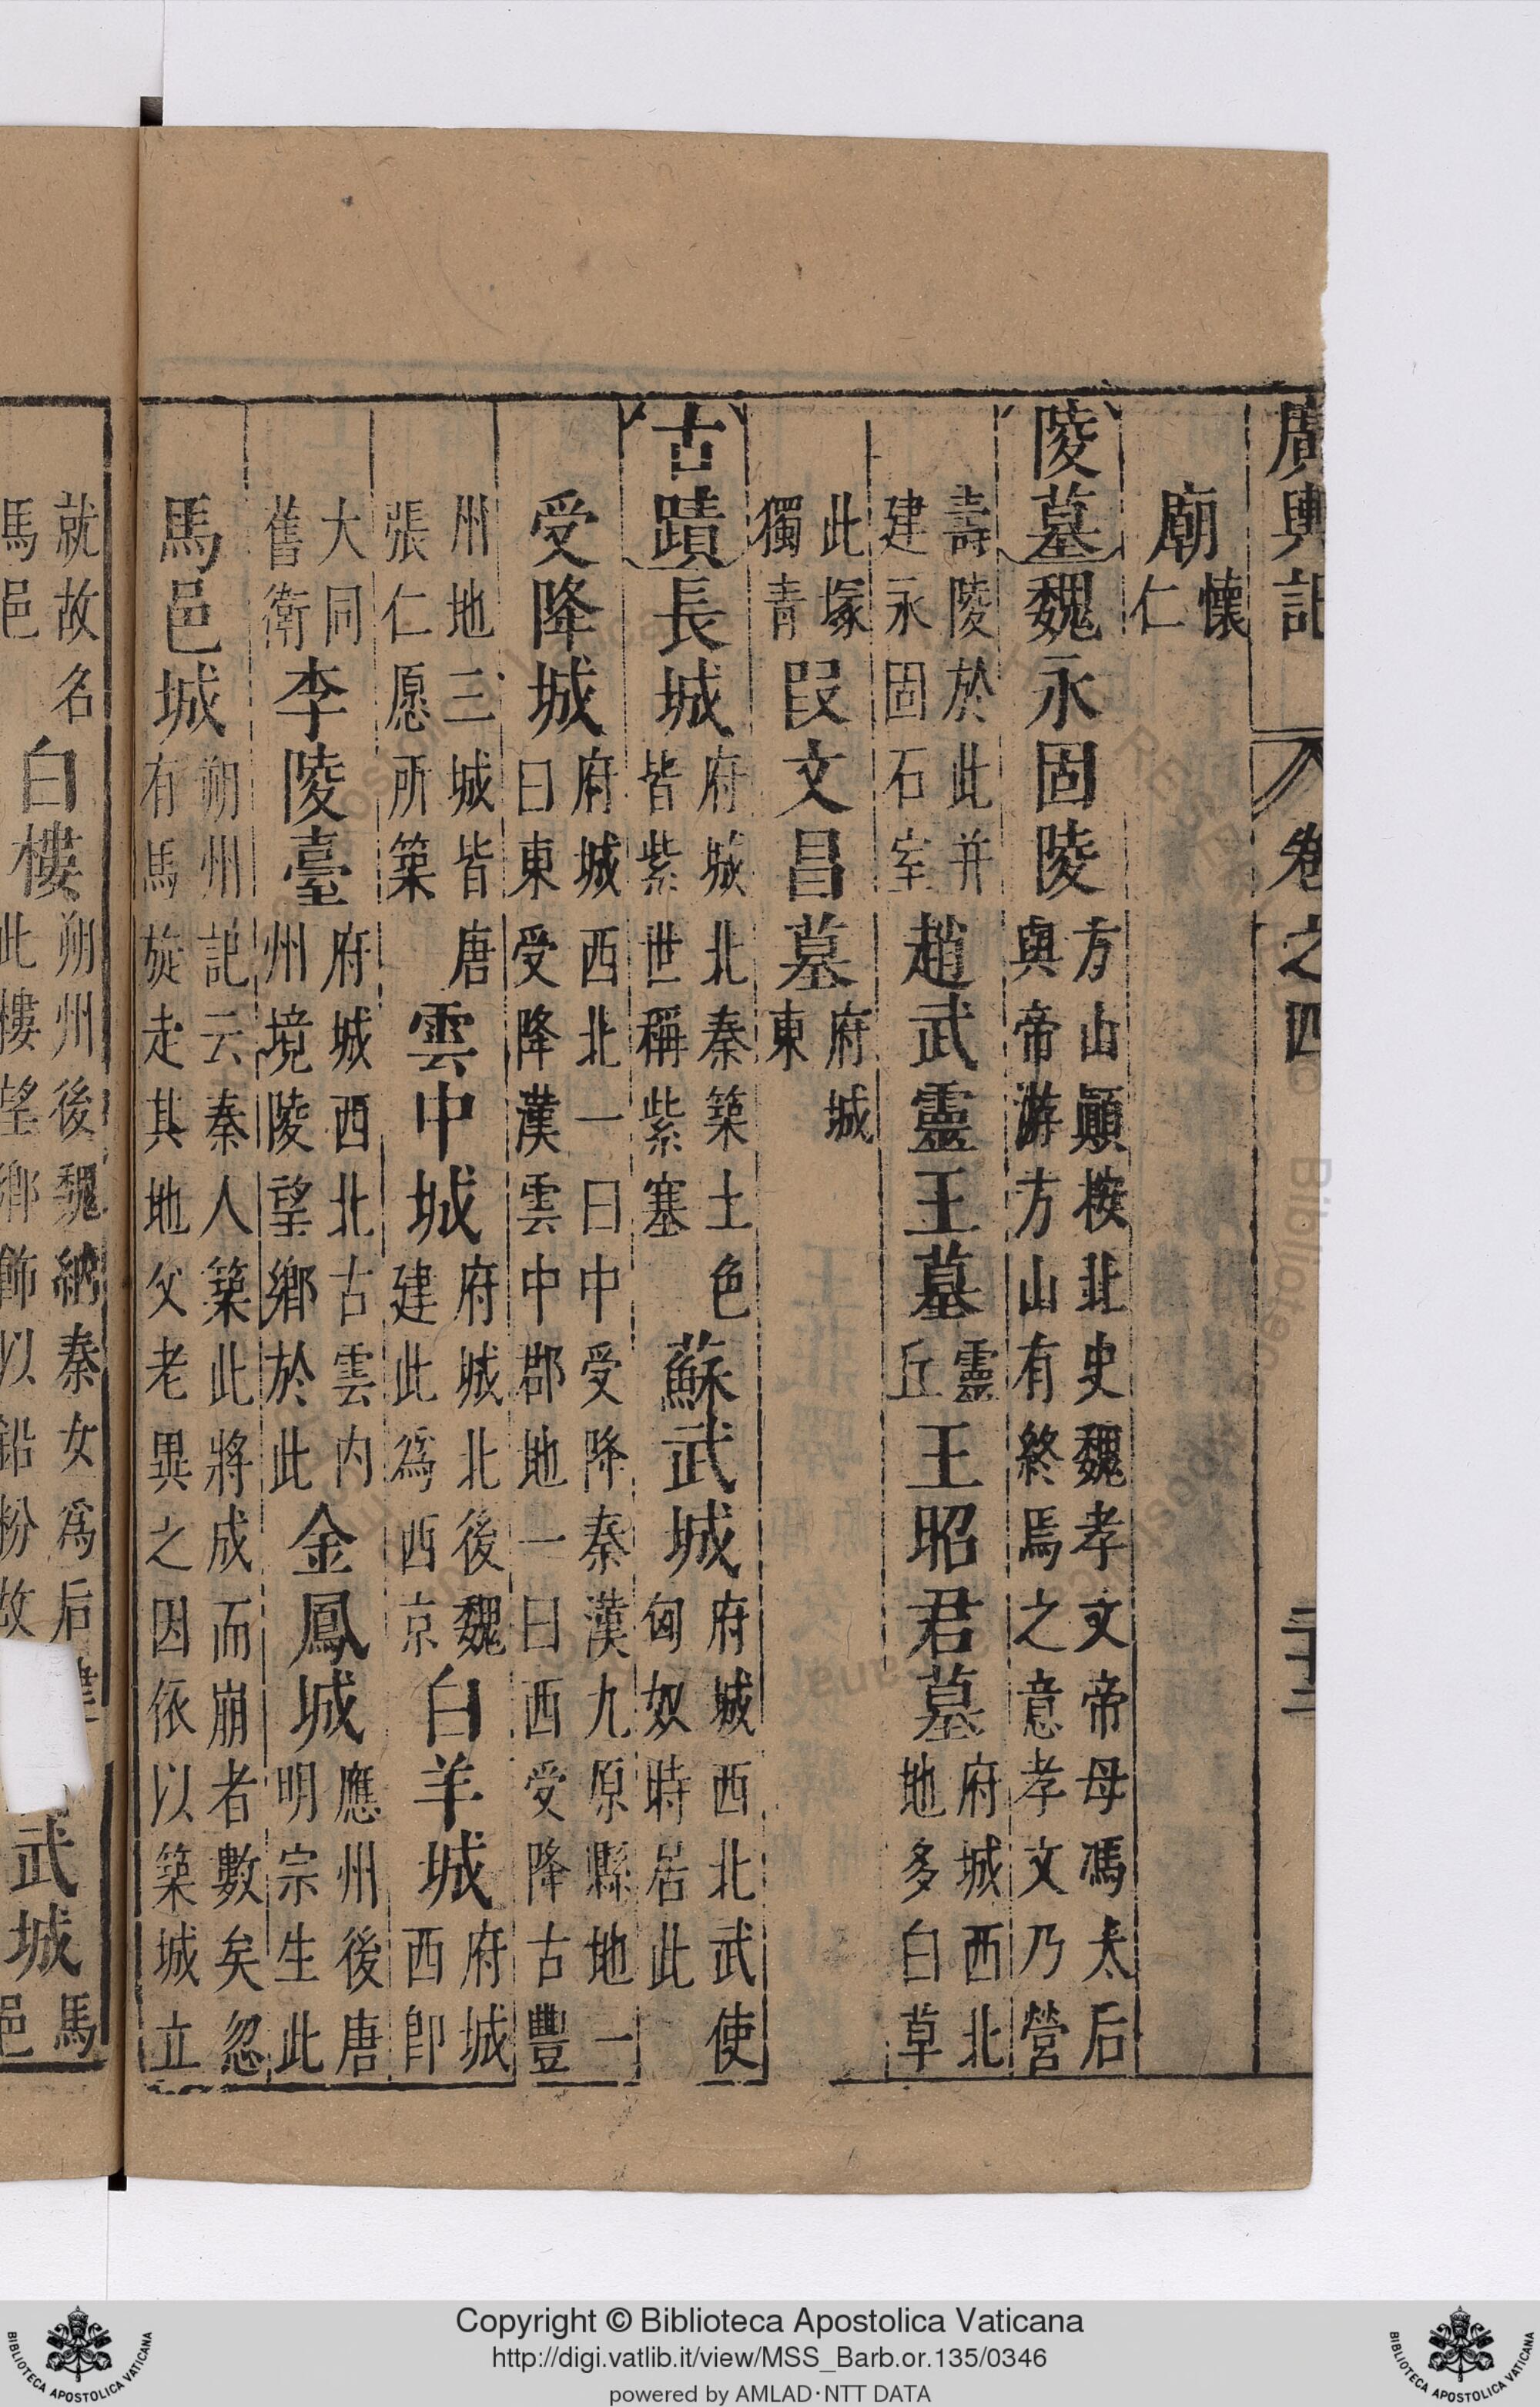 廣輿記 卷之四 三十二
廟懷仁
陵墓魏永固陵方山顚按北史魏孝文帝母馮太后與帝游方山有終焉之意孝文乃營
壽陵於此并建永固石室趙武靈王墓靈丘王昭君墓府城西北地多白草
此塚獨青段文昌墓府城東
古蹟長城府城北秦築土色皆紫世稱紫塞蘇武城府城西北武使匈奴時居此
受降城府城西北一曰中受降秦漢九原縣地一曰東受降漢雲中郡地一曰西受降古豐
州地三城皆唐張仁愿所築雲中城府城北後魏建此爲西京白羊城府城西卽
大同舊衛李陵臺府城西北古雲内州境陵望鄉於此金鳳城應州後唐明宗生此
馬邑城朔州記云秦人築此將成而崩者數矣忽有馬旋走其地父老異之因依以築城立
就故名馬邑白樓朔州後魏納秦女爲后此樓望鄉飾以鉛粉故武城馬邑
Copyright © Biblioteca Apostolica Vaticana
http://digi.vatlib.it/view/MSS_Barb.or.135/0346
powered by AMLAD·NTT DATA
BIBLIOTECA APOSTOLICA VATICANA
BIBLIOTECA APOSTOLICA VATICANA